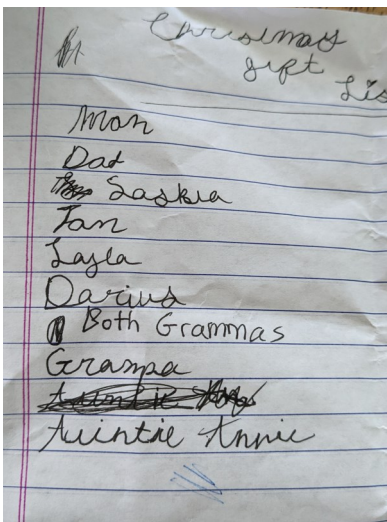 Christmas
gift
Lis
Mom
Dad
Saskia
Ian
Layla
Darius
Both Grammas
Grampa
Auintie Annie